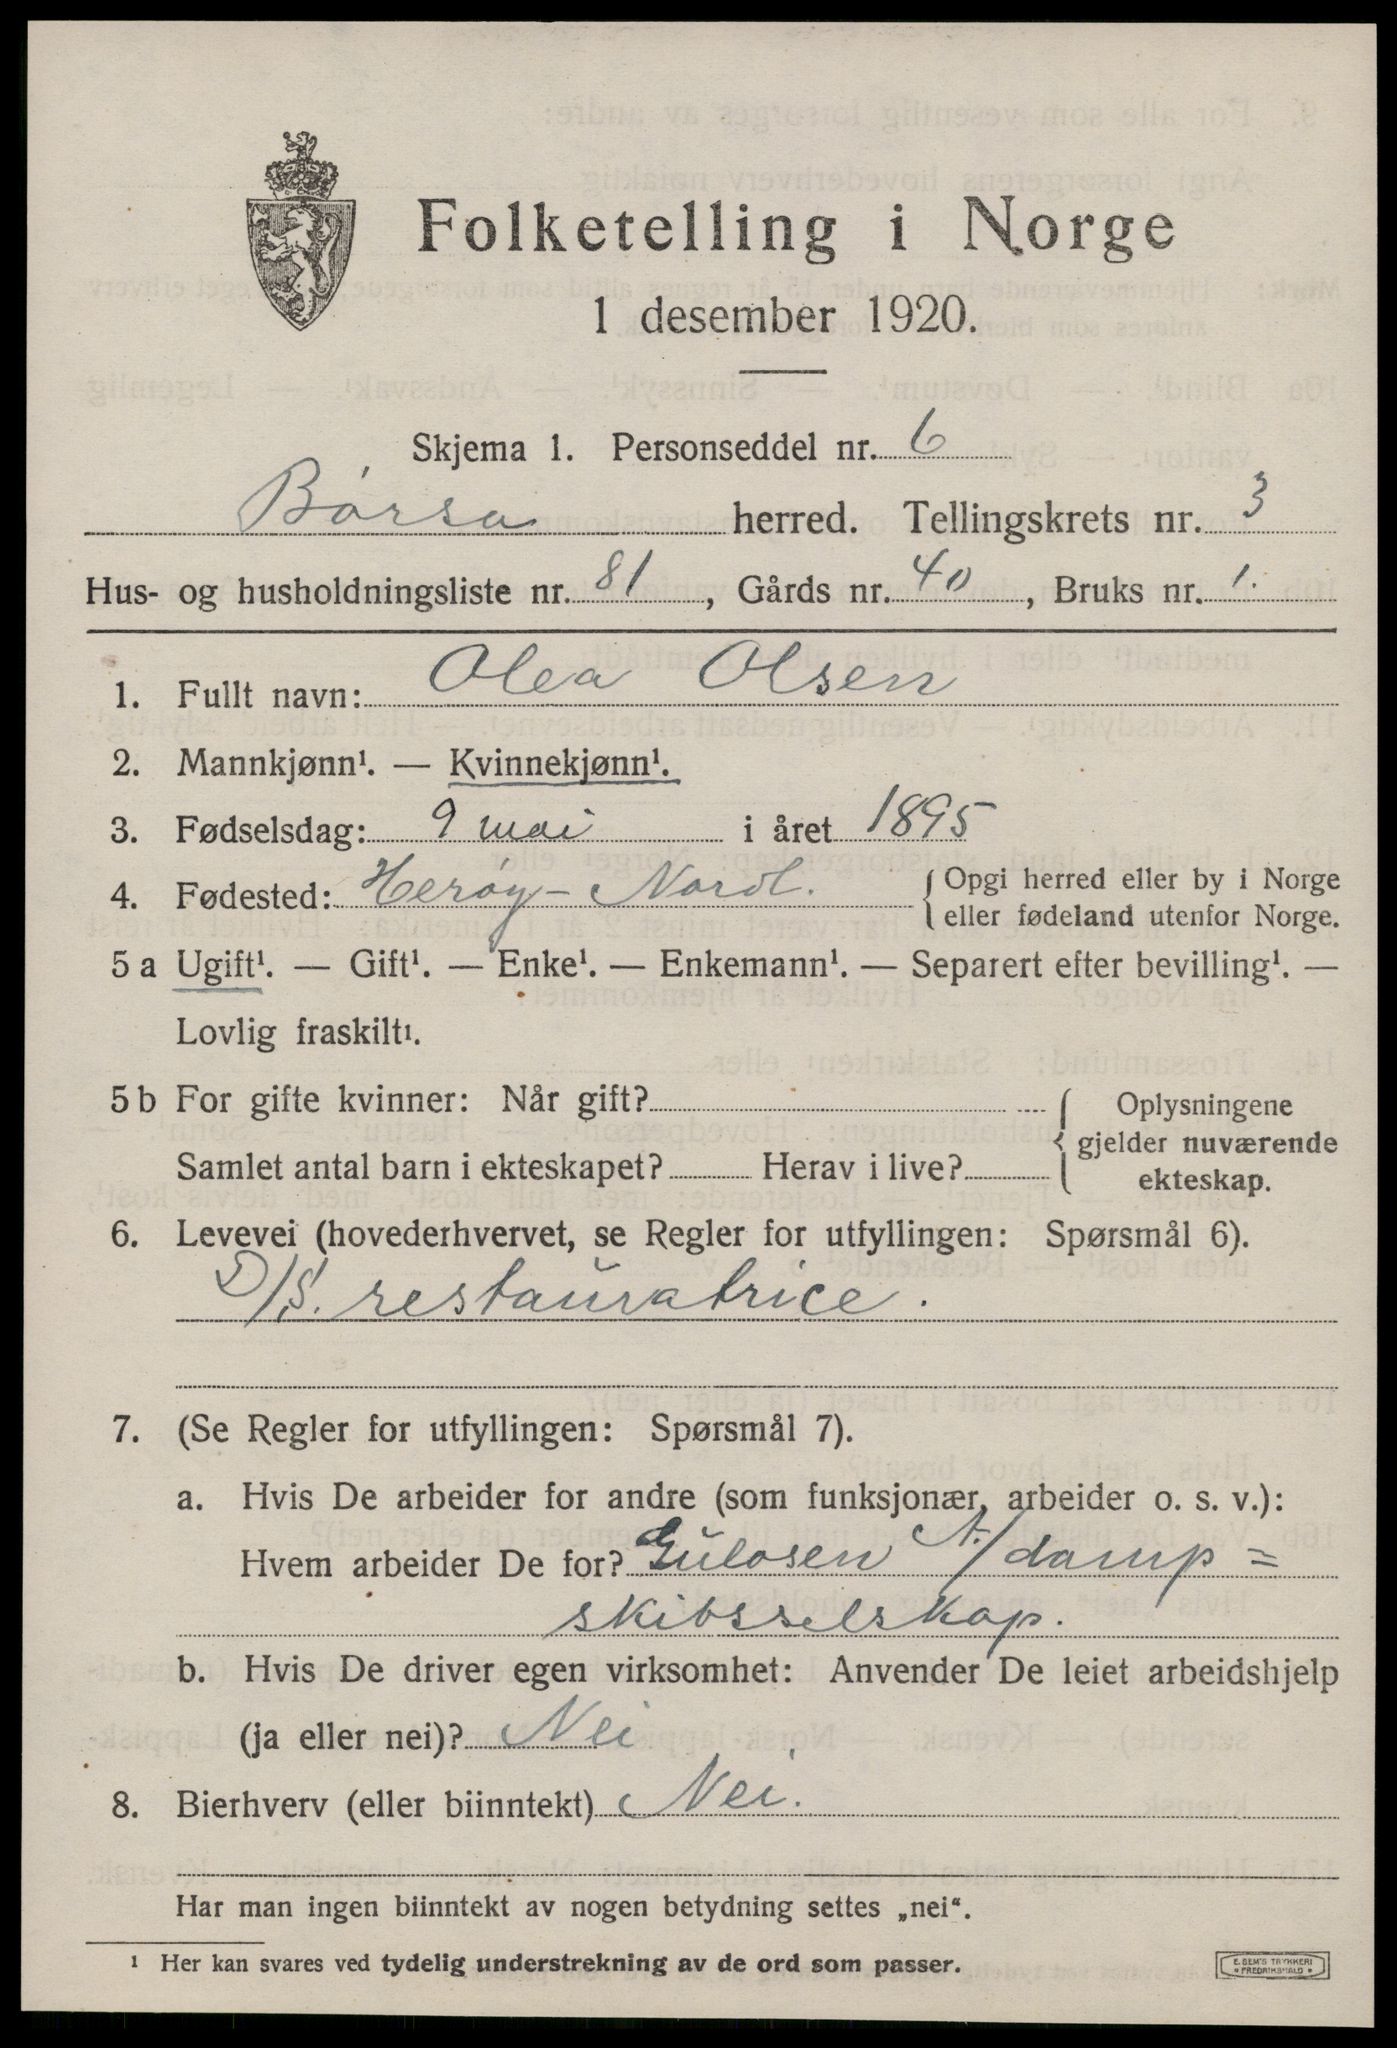 Folketelling i Norge
1 desember 1920.
Skjema 1. Personseddel nr. 6
Børsa herred. Tellingskrets nr. 3
Hus- og husholdningsliste nr. 81, Gårds nr. 40, Bruks nr. 1.
1. Fullt navn: Olea Olsen
2. Mannkjønn¹. — Kvinnekjønn¹.
3. Fødselsdag: 9 mai i året 1895
4. Fødested: Herøy - Nordl. { Opgi herred eller by i Norge
eller fødeland utenfor Norge.
5 a Ugift¹. — Gift¹. — Enke¹. — Enkemann¹. — Separert efter bevilling¹. —
Lovlig fraskilt¹.
5 b For gifte kvinner: Når gift? { Oplysningene
gjelder nuværende
Samlet antal barn i ekteskapet? Herav i live?
ekteskap.
6. Levevei (hovederhvervet, se Regler for utfyllingen: Spørsmål 6).
D/S. restauratrice.
7. (Se Regler for utfyllingen: Spørsmål 7).
a. Hvis De arbeider for andre (som funksjonær, arbeider o. s. v.):
Hvem arbeider De for? Gulosen A/damp=
skibsselskap.
b. Hvis De driver egen virksomhet: Anvender De leiet arbeidshjelp
(ja eller nei)? Nei
8. Bierhverv (eller biinntekt) Nei.
Har man ingen biinntekt av nogen betydning settes „nei“.
¹ Her kan svares ved tydelig understrekning av de ord som passer.
E. SEM'S TRYKKERI
FREDRIKSHALD